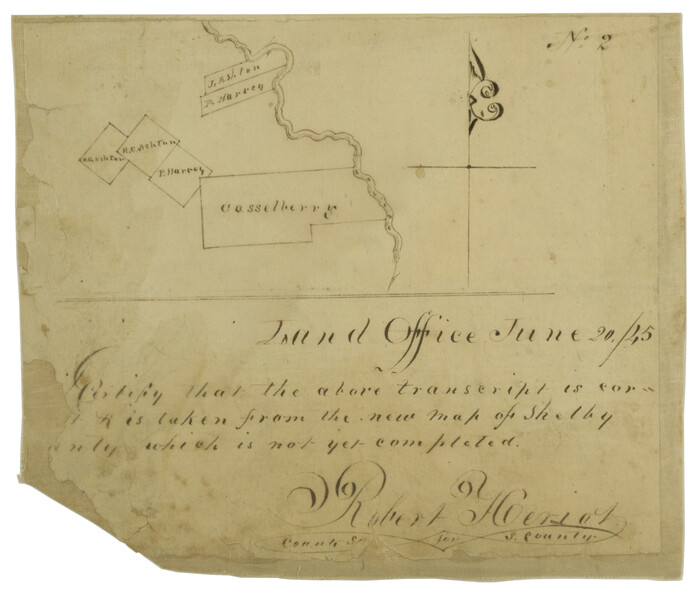 No 2
J. Ashton
P. Harvey
H. C. Ashton
P. Harvey
Casselberry
Land Office June 20/45
Certify that the above transcript is cor-
t & is taken from the new map of Shelby
unty which is not yet completed.
Robert Heriot
County for S. County